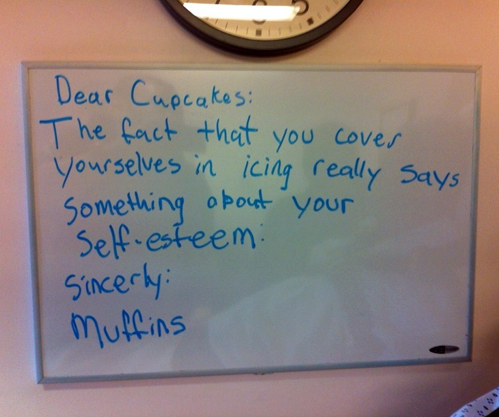 Dear Cupcakes:
The fact that you cover
yourselves in icing really says
something about your
Self-esteem:
sincerly:
Muffins